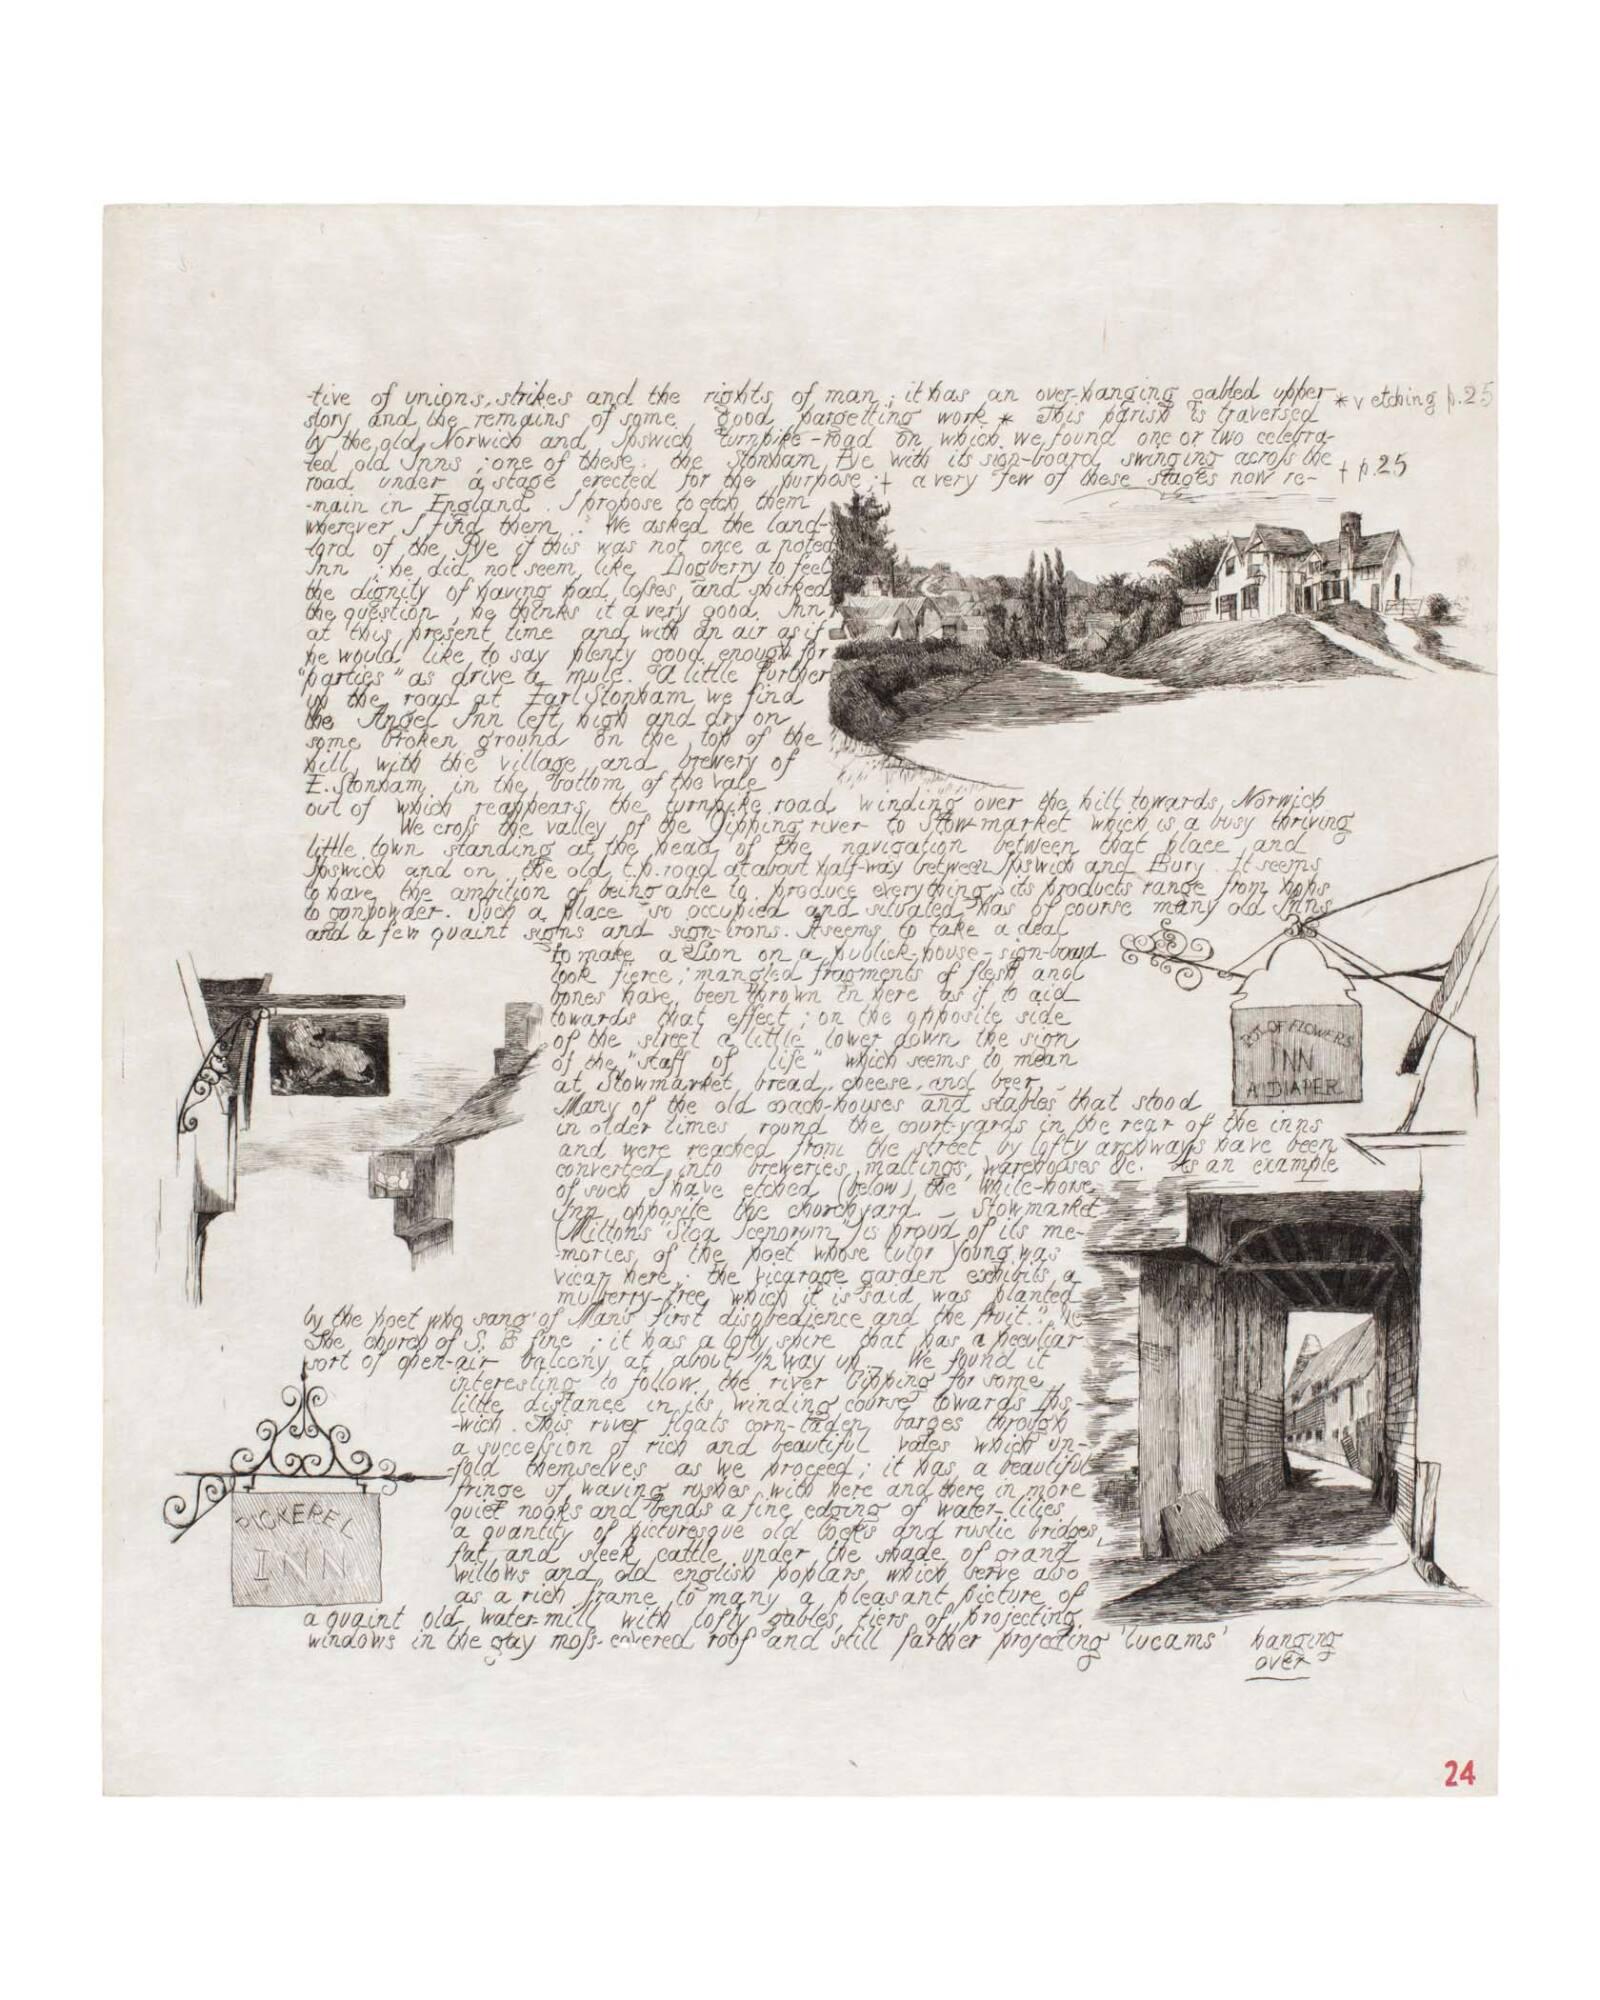 -tive of unions, strikes and the rights of man ; it has an over-hanging gabled upper * v etching p.25
story and the remains of some good pargetting work * This parish is traversed
by the old Norwich and Ipswich turnpike-road on which we found one or two celebra-
ted old Inns ; one of these the Stonham Pye with its sign-board swinging across the
road under a stage erected for the purpose ; † a very few of these stages now re- † p.25
-main in England. I propose to etch them
wherever I find them. We asked the land-
lord of the Pye if this was not once a noted
Inn ; he did not seem like Dogberry to feel
the dignity of having had losses and shirked
the question, he thinks it a very good Inn
at this present time and with an air as if
he would like to say plenty good enough for
"parties" as drive a mule. A little further
up the road at Earl Stonham we find
the Angel Inn left high and dry on
some broken ground on the top of the
hill, with the village and brewery of
E. Stonham in the bottom of the vale
out of which reappears the turnpike road winding over the hill towards Norwich
We cross the valley of the Gipping river to Stow-market which is a busy thriving
little town standing at the head of the navigation between that place and
Ipswich and on the old t.p. road at about half-way between Ipswich and Bury. It seems
to have the ambition of being able to produce everything, its products range from hops
to gunpowder. Such a place so occupied and situated has of course many old Inns
and a few quaint signs and sign-irons. It seems to take a deal
to make a Lion on a publick-house-sign-board
look fierce ; mangled fragments of flesh and
bones have been thrown in here as if to aid
towards that effect ; on the opposite side
of the street a little lower down the sign
of the "staff of life" which seems to mean
at Stowmarket bread, cheese, and beer.
POT OF FLOWERS
INN
A. DIAPER
Many of the old coach-houses and stables that stood
in older times round the court-yards in the rear of the inns
and were reached from the street by lofty archways have been
converted into breweries, maltings, warehouses &c. As an example
of such I have etched (below) the White-horse
Inn opposite the churchyard — Stowmarket
(Milton's "Stoa Icenorum") is proud of its me-
-mories of the poet whose tutor Young was
vicar here ; the vicarage garden exhibits a
mulberry-tree which it is said was planted
by the poet who sang "of Man's first disobedience and the fruit." &c
The church of S. is fine ; it has a lofty spire that has a peculiar
sort of open-air balcony at about 1/2 way up. We found it
interesting to follow the river Gipping for some
little distance in its winding course towards Ips-
-wich. This river floats corn-laden barges through
a succession of rich and beautiful vales which un-
-fold themselves as we proceed ; it has a beautiful
fringe of waving rushes with here and there in more
quiet nooks and bends a fine edging of water-lilies,
a quantity of picturesque old locks and rustic bridges,
fat and sleek cattle under the shade of grand
willows and old english poplars which serve also
as a rich frame to many a pleasant picture of
a quaint old water-mill with lofty gables, tiers of projecting
windows in the gay moss-covered roof and still farther projecting 'lucams' hanging
over
PICKEREL
INN
24